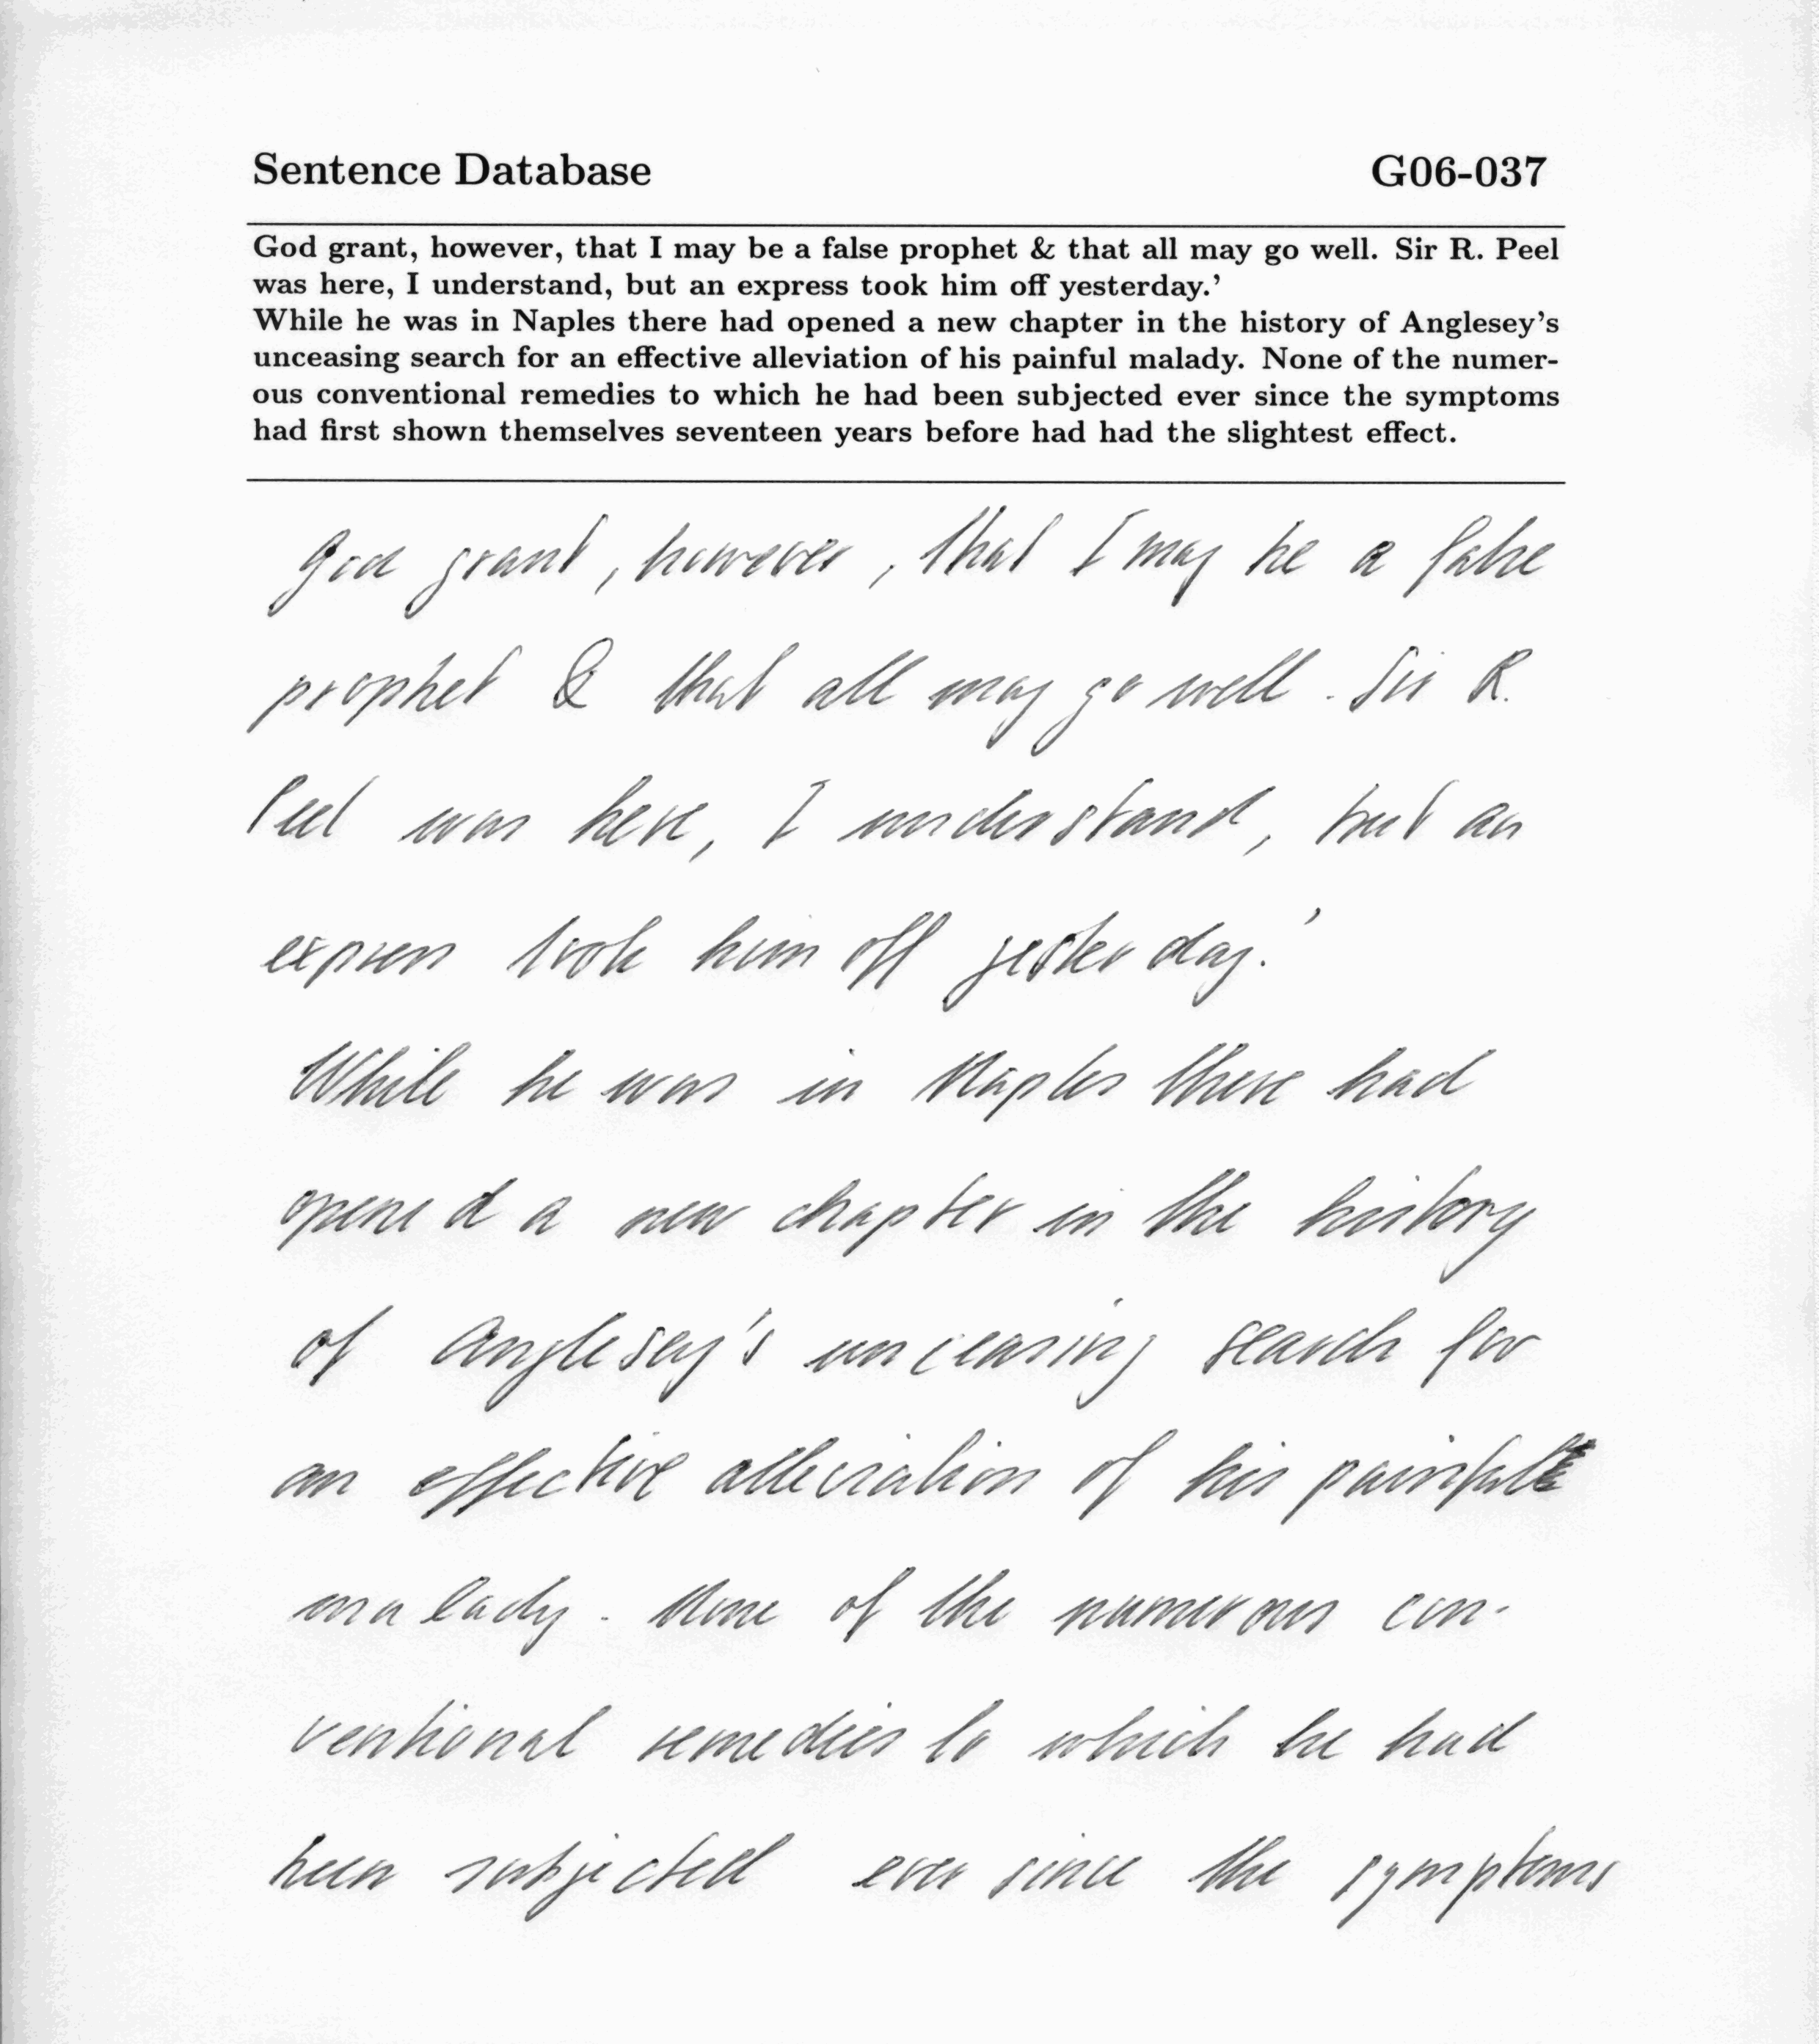 Sentence Database G06-037
God grant, however, that I may be a false prophet & that all may go well. Sir R. Peel
was here, I understand, but an express took him off yesterday.’
While he was in Naples there had opened a new chapter in the history of Anglesey’s
unceasing search for an effective alleviation of his painful malady. None of the numer-
ous conventional remedies to which he had been subjected ever since the symptoms
had first shown themselves seventeen years before had had the slightest effect.
God grant, however, that I may be a false
prophet & that all may go well. Sir R.
Peel was here, I understand, but an
express took him off yesterday.'
While he was in Naples there had
opened a new chapter in the history
of Anglesey's unceasing search for
an effective alleviation of his painful
malady. None of the numerous con-
ventional remedies to which he had
been subjected ever since the symptoms